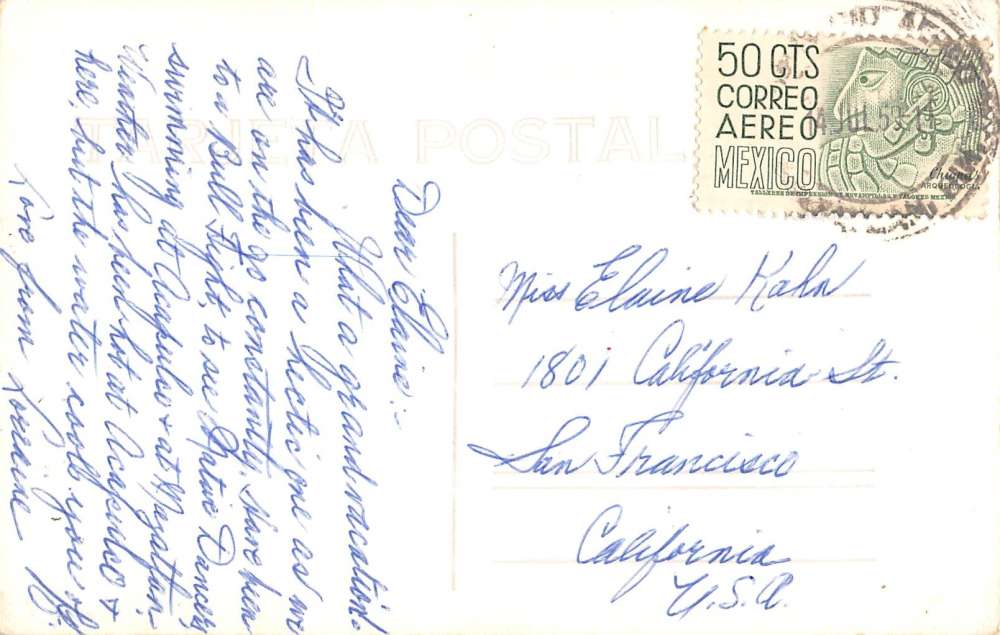 TARJETA POSTAL
50 CTS
CORREO
AEREO
MEXICO
Chiapas
ARQUEOLOGIA
TALLERES DE IMPRESION DE ESTAMPILLAS Y VALORES MEXICO
JUL 53
Dear Elaine:-
What a grand vacation!
It has been a hectic one as we
are on the go constantly. Have been
to a Bull Fight, to see Native Dancers,
swimming at Acapulco & at Mazatlan.
Weather has been hot at Acapulco &
here, but the water cools you off.
Love from Loraine
Miss Elaine Kahn
1801 California St.
San Francisco
California
U.S.A.